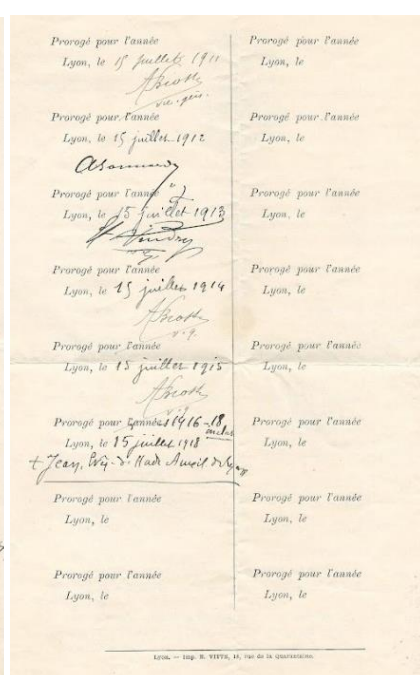 Prorogé pour l'année
Lyon, le 15 juillet 1911
vic. gén.
Prorogé pour l'année
Lyon, le 15 juillet 1912
Prorogé pour l'année
Lyon, le 15 juillet 1913
Prorogé pour l'année
Lyon, le 15 juillet 1914
v. g.
Prorogé pour l'année
Lyon, le 15 juillet 1915
v. g.
Prorogé pour l'année 1916-18
Lyon, le 15 juillet 1918
+ Jean, Év. d'
Prorogé pour l'année
Lyon, le
Prorogé pour l'année
Lyon, le
Prorogé pour l'année
Lyon, le
Prorogé pour l'année
Lyon, le
Prorogé pour l'année
Lyon, le
Prorogé pour l'année
Lyon, le
Prorogé pour l'année
Lyon, le
Prorogé pour l'année
Lyon, le
Prorogé pour l'année
Lyon, le
Prorogé pour l'année
Lyon, le
Lyon. — Imp. E. VITTE, 18, rue de la Quarantaine.